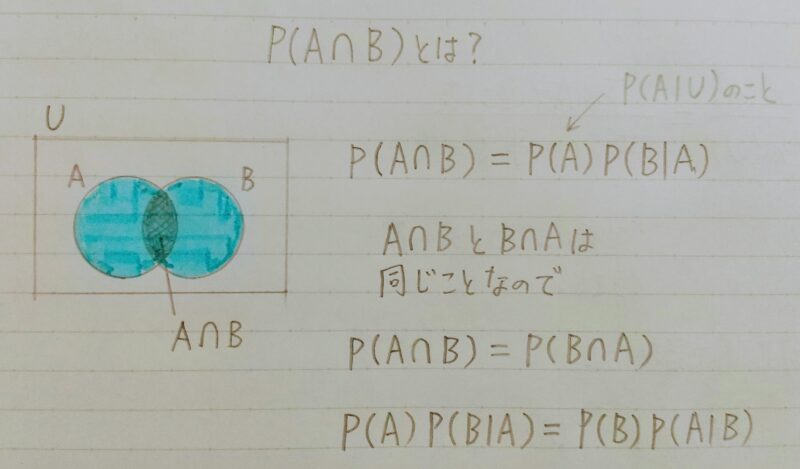 P(A∩B)とは?
P(A|U)のこと
U
A
B
A∩B
P(A∩B) = P(A)P(B|A)
A∩BとB∩Aは
同じことなので
P(A∩B) = P(B∩A)
P(A)P(B|A) = P(B)P(A|B)